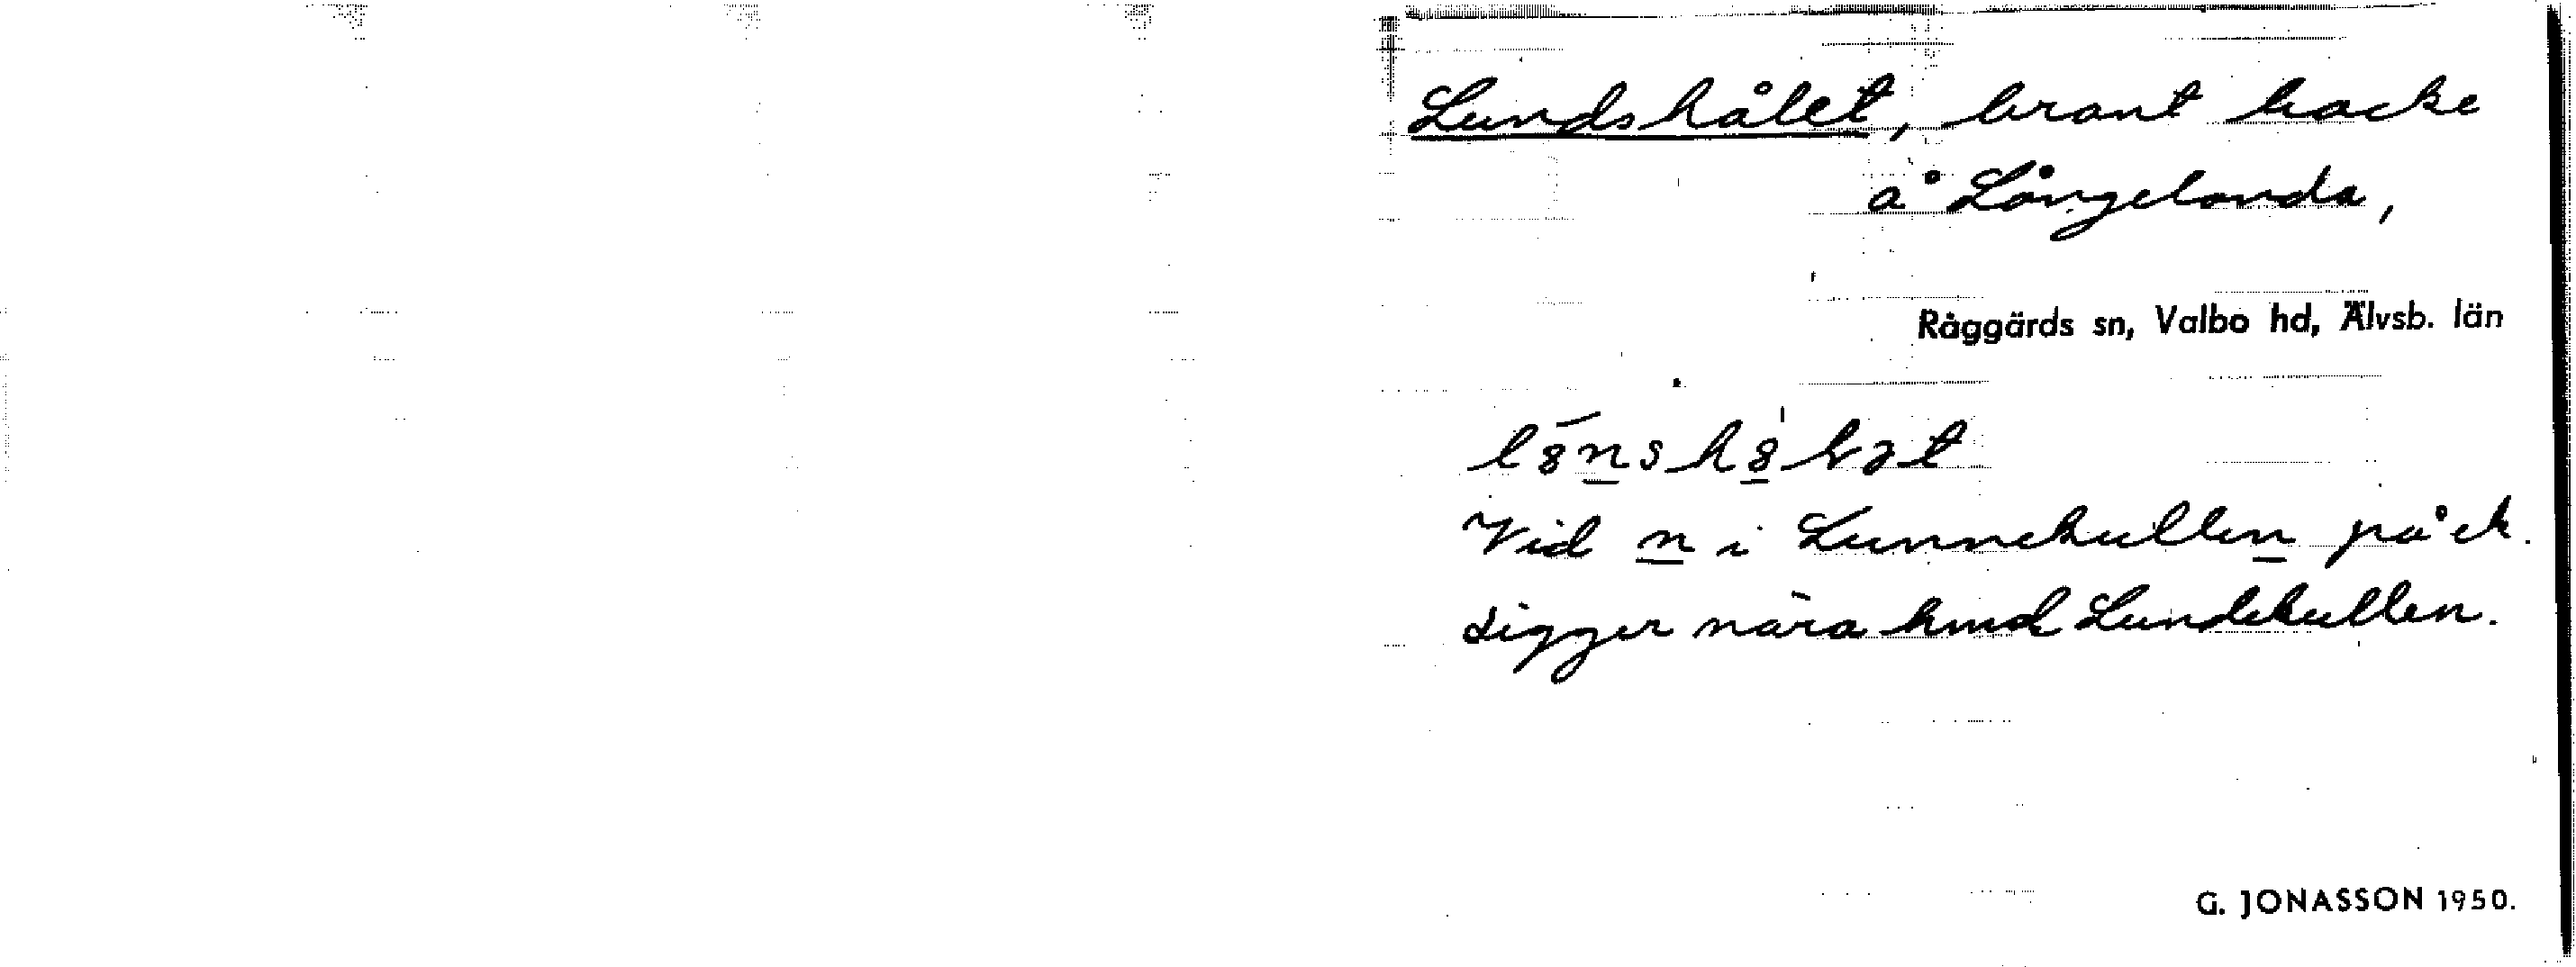 Lundshålet, brant backe
å Långelanda,
Råggärds sn, Valbo hd, Älvsb. län
Vid n i Lunnekullen på ek.
Ligger nära hmd Lundekullen.
G. JONASSON 1950.